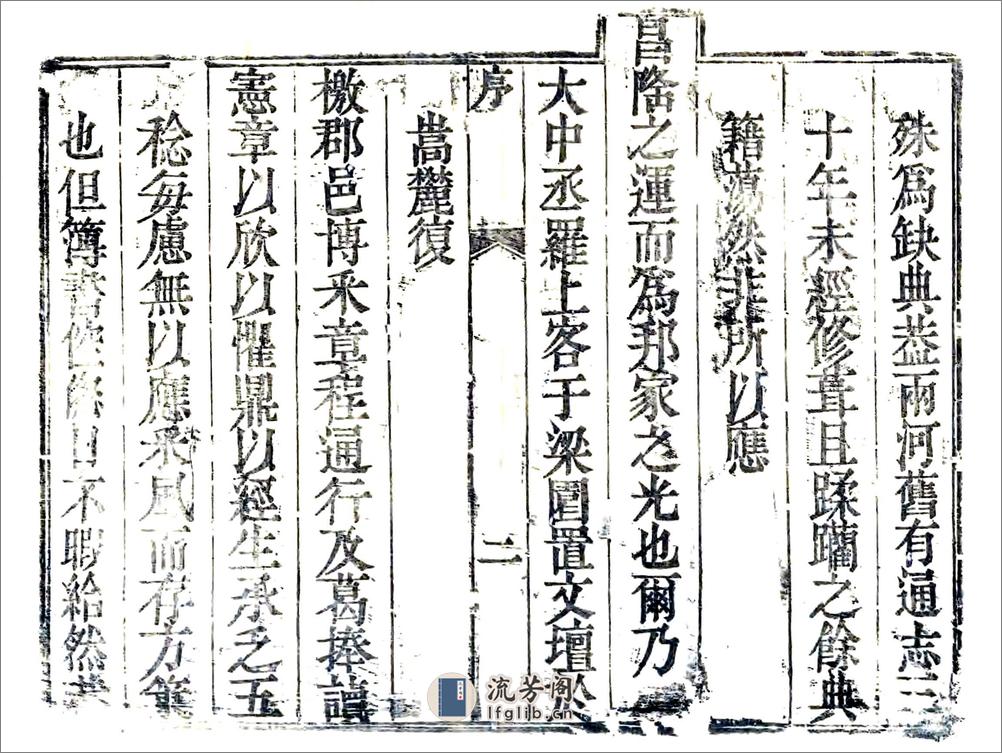 殊爲缺典葢兩河舊有通志三
十年未經修葺且蹂躪之餘典
籍蕩然非所以應
昌隆之運而爲邦家之光也爾乃
大中丞羅上客于梁園置文壇於
序 二
嵩麓復
檄郡邑博采章程通行及葛捧讀
憲章以欣以懼鼎以經生承乏五
稔每慮無以應采風而存方策
也但簿書終日不暇給然
流芳阁
lfglib.cn